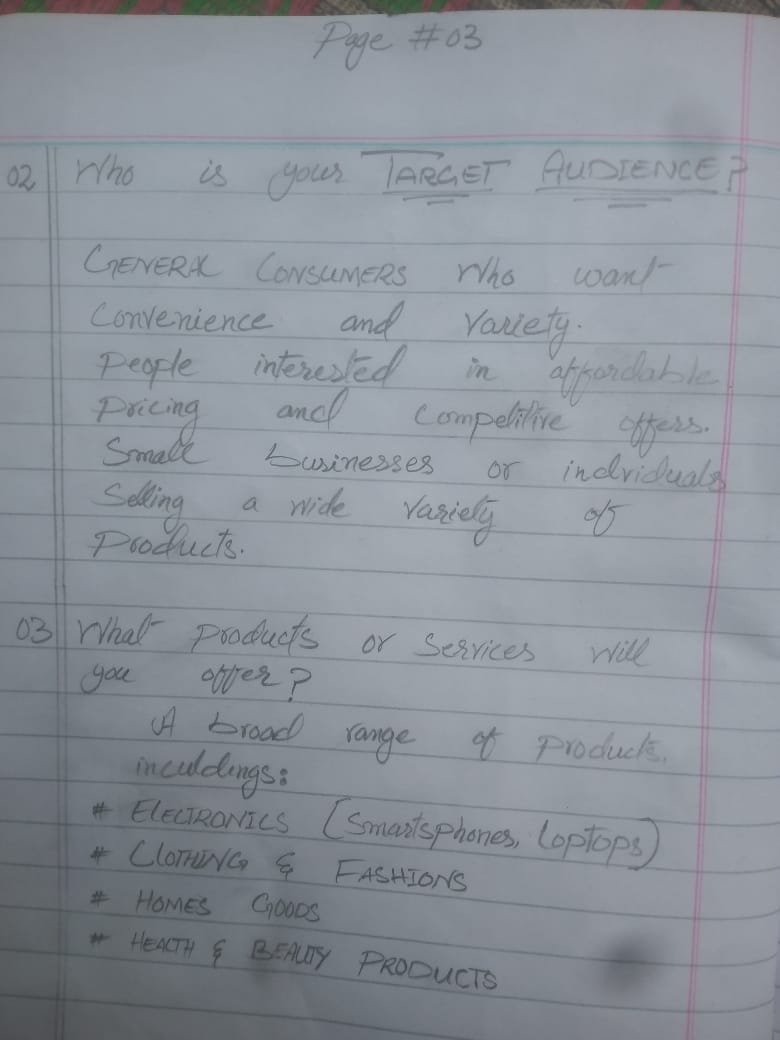 Page #03
02 Who is your TARGET AUDIENCE?
GENERAL CONSUMERS Who want
Convenience and Variety.
People interested in affordable
Pricing and Competitive offers.
Small businesses or individuals
Selling a wide Variety of
Products.
03 What products or Services will
you offer?
A broad range of products.
inculdings:
# ELECTRONICS (Smartsphones, Loptops)
# CLOTHING & FASHIONS
# HOMES GOODS
# HEALTH & BEAUTY PRODUCTS